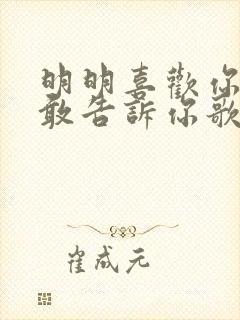 明明喜歡你
敢告訴你歌
崔成元